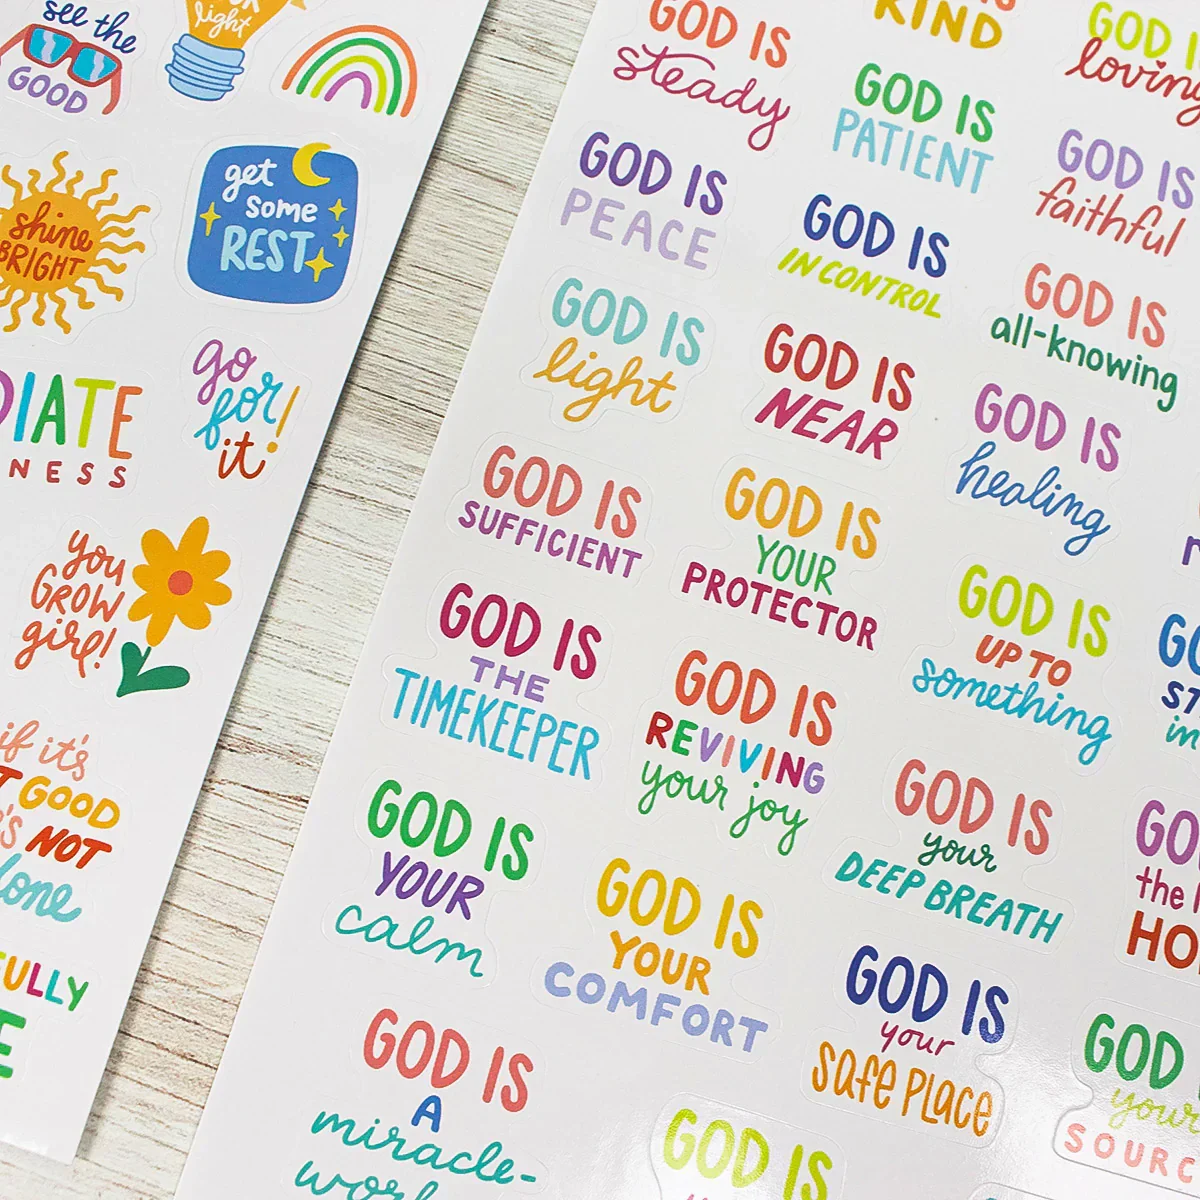 see the
GOOD
light
shine
BRIGHT
get
some
REST
DIATE
NESS
go
for
it!
you
GROW
girl!
if it's
GOOD
NOT
FULLY
GOD IS
steady
KIND
GOD IS
loving
GOD IS
PATIENT
GOD IS
PEACE
GOD IS
IN CONTROL
GOD IS
faithful
GOD IS
light
GOD IS
NEAR
GOD IS
all-knowing
GOD IS
SUFFICIENT
GOD IS
YOUR
PROTECTOR
GOD IS
healing
GOD IS
THE
TIMEKEEPER
GOD IS
REVIVING
your joy
GOD IS
UP TO
something
GOD IS
YOUR
calm
GOD IS
YOUR
COMFORT
GOD IS
your
DEEP BREATH
GOD IS
your
SAFE PLACE
GOD IS
A
miracle-
GOD IS
GOD
your
SOURC
in
the
HO